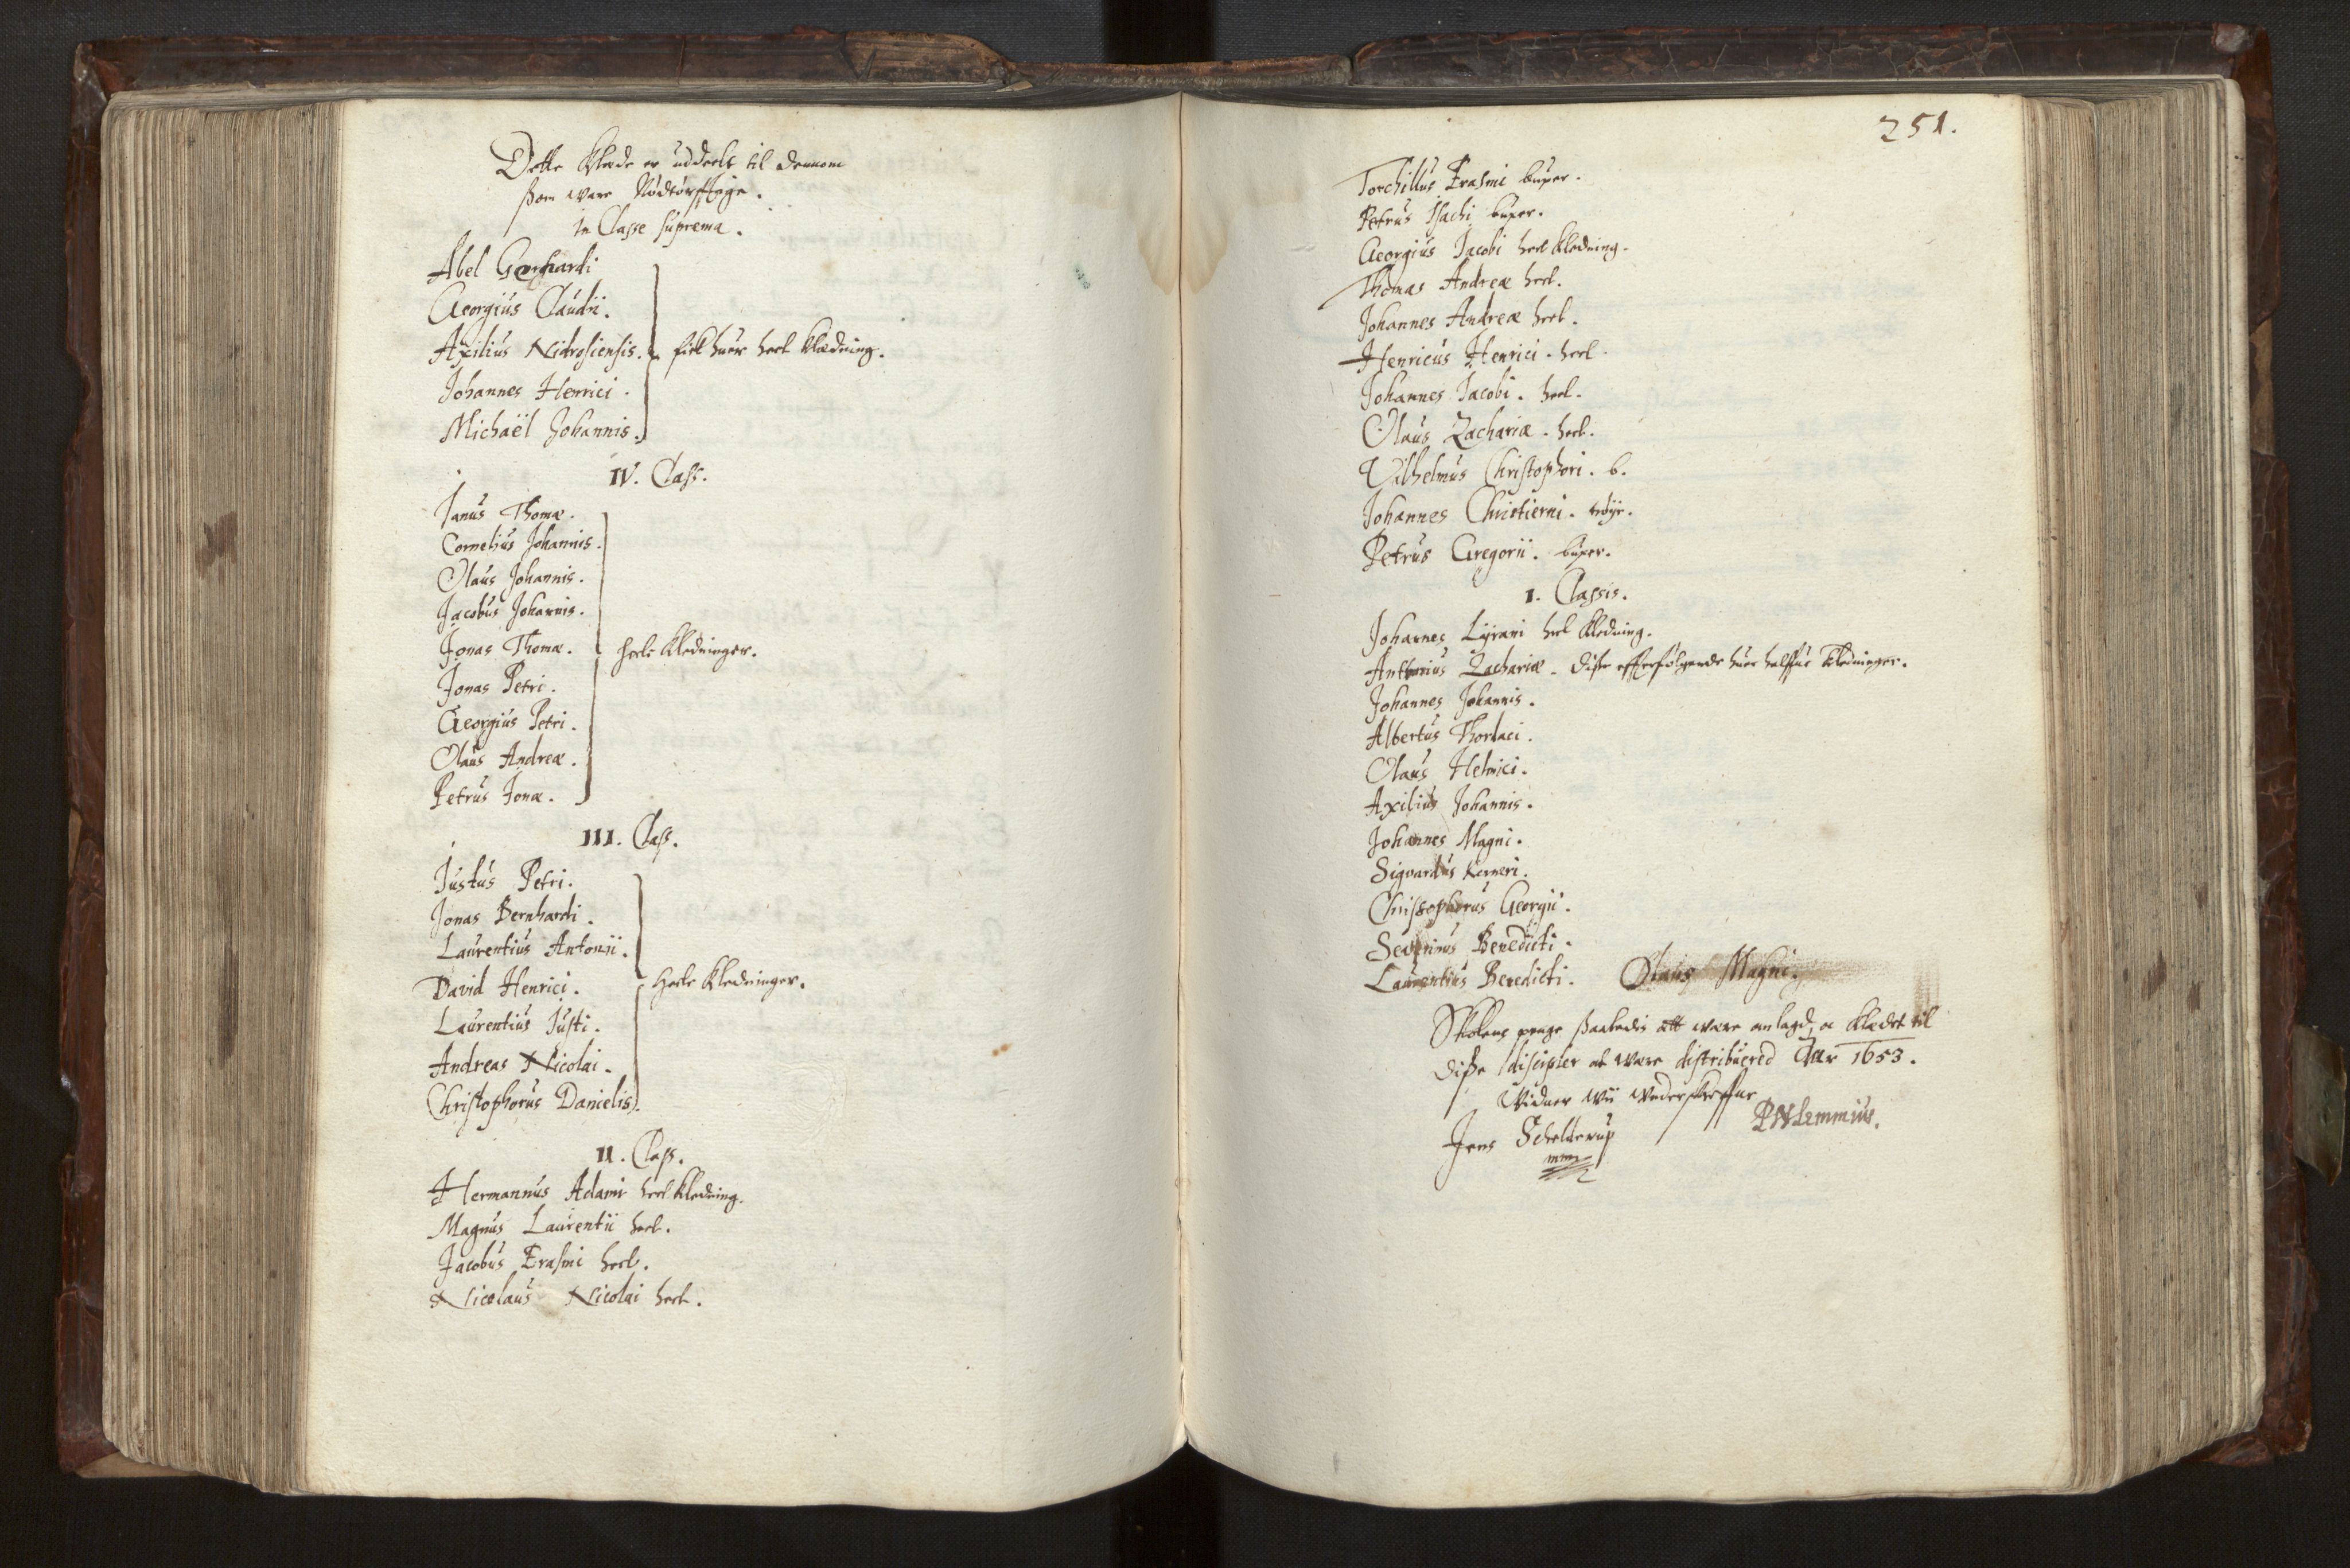 Dette Klæde er uddeelt til dennom
ßom ware Nødtørfftige.
in Classe suprema.
Abel Gerhardi
Georgius Claudii.
Axilius Nidrosiensis. fick huer heel klædning.
Johannes Henrici.
Michaël Johannis.
IV. Class.
Janus Thomæ.
Cornelius Johannis.
Olaus Johannis.
Jacobus Johannis.
Jonas Thomæ. heele kledninger.
Jonas Petri.
Georgius Petri.
Olaus Andreæ.
Petrus Jonæ.
III. Class.
Justus Petri.
Jonas Bernhardi.
Laurentius Antonii.
David Henrici. Heele kledninger.
Laurentius Justi.
Andreas Nicolai.
Christophorus Danielis.
II. Class.
Hermannus Adami heel kledning.
Magnus Laurentii heel.
Jacobus Erasmi heel.
Nicolaus Nicolai heel.
251.
Torchillus Erasmi buxer.
Petrus Isachi buxer.
Georgius Jacobi heel kledning.
Thomas Andreæ heel.
Johannes Andreæ heel.
Henricus Henrici. heel
Johannes Jacobi. heel.
Olaus Zachariæ. heel.
Vilhelmus Christophori. b.
Johannes Christierni. trøye.
Petrus Gregorii. buxer.
I. Classis.
Johannes Lyrani heel kledning.
Antonius Zachariæ. disse efterfølgende huer halffue kledninger.
Johannes Johannis.
Albertus Thorlaci.
Olaus Helmici.
Axilius Johannis.
Johannes Magni.
Sigvardus Kerneri.
Christophorus Georgii.
Severinus Benedicti.
Laurentius Benedicti. Olaus Magni.
Skolens penge ßaaledis att være anlagd, oc klædet til
disse discipler at være distribuered Aar 1653.
Vidner Wii Vnderskreffne
Jens Schelderup PNLemmius.
mm